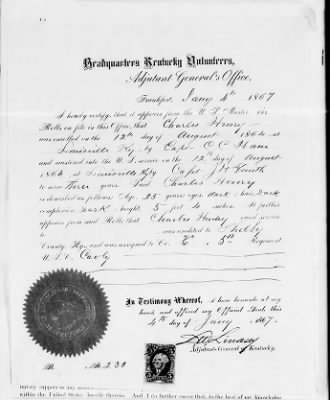 Headquarters Kentucky Volunteers,
Adjutant General's Office,
Frankfort, Jany 4th 1867
I hereby certify, that it appears from the U. S. Muster in
Rolls on file in this Office, that Charles Henry
was enrolled on the 12th day of August 1864, at
Louisville Ky, by Capt C C Hare
and mustered into the U. S. service on the 12th day of August
1864 at Louisville Ky by Capt J H Smith
to serve three years. Said Charles Henry
is described as follows: Age, 25 years eyes, dark hair, dark
complexion, dark height, 5 feet 4 inches. It further
appears from said Rolls that Charles Henry
was credited to Shelby
County, Ky., and was assigned to Co. E 5th Regiment
U.S.C. Cavly
In Testimony Whereof, I have hereunto set my
hand and affixed my Official Seal, this
4th day of Jany 1867.
D W Lindsey
Adjutant-General Kentucky.
No. 230
within the United States hostile thereto. And I do further swear that, to the best of my knowledge